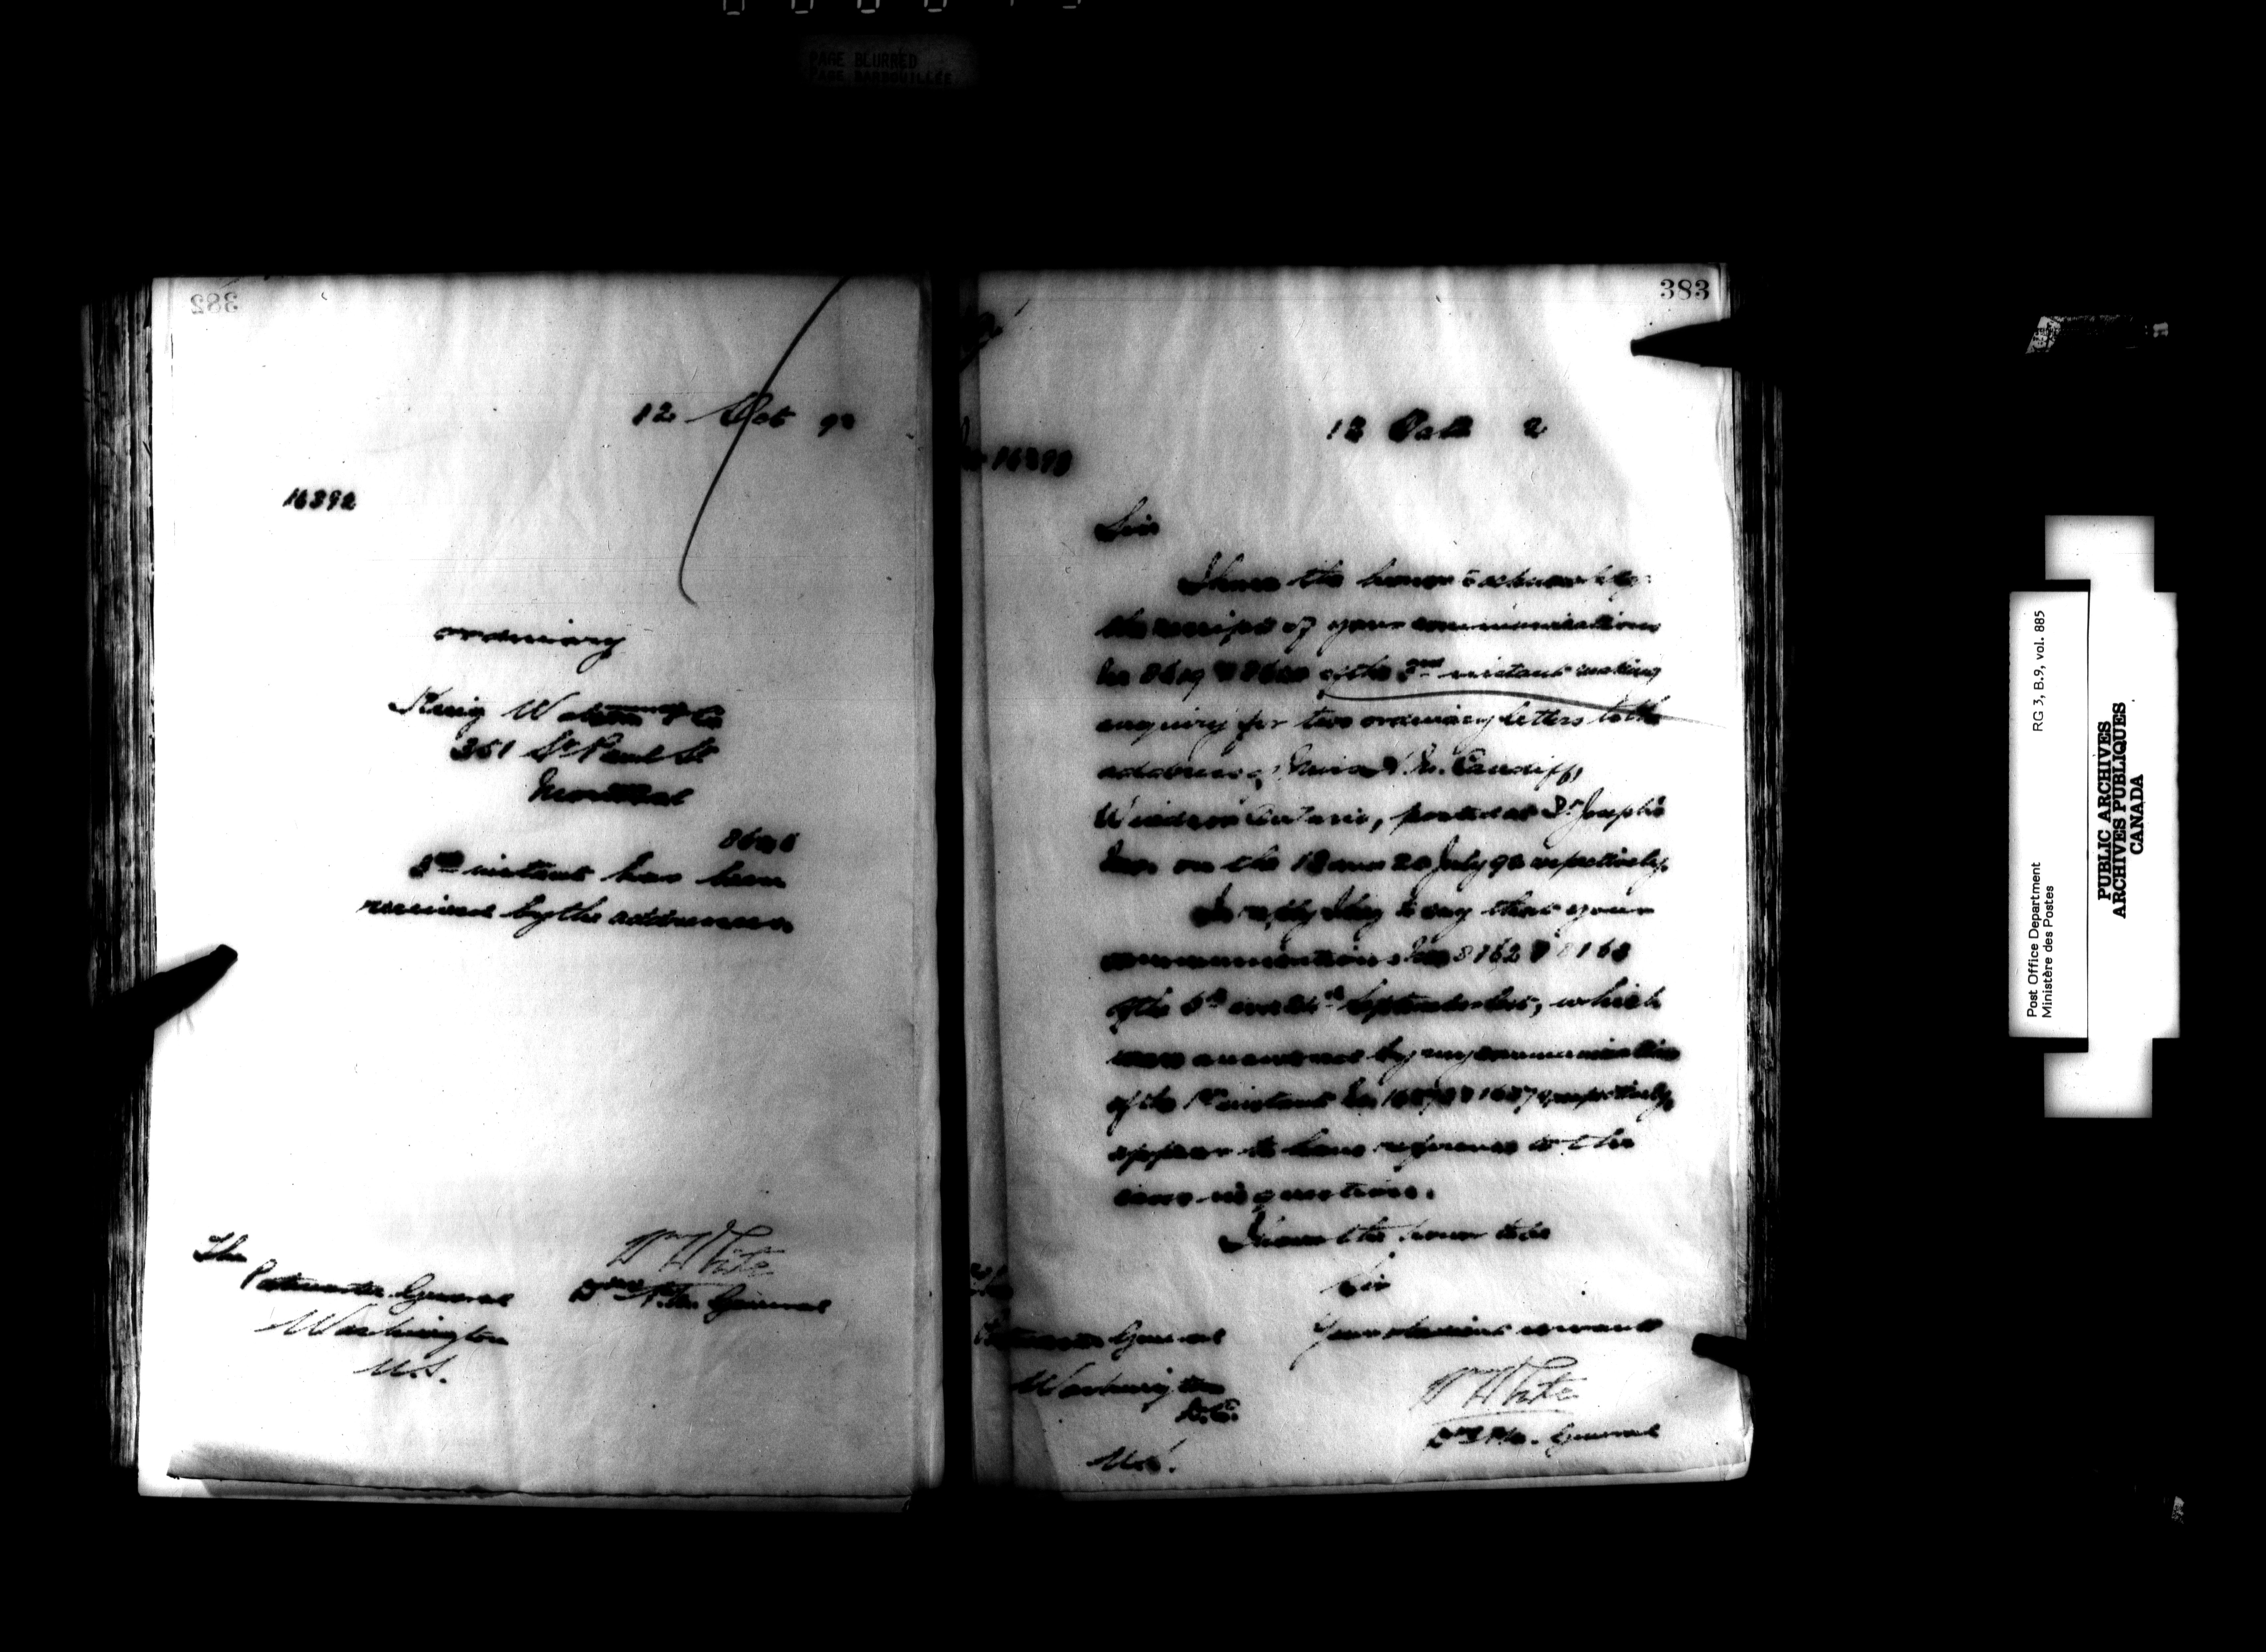 PAGE BLURRED
PAGE BARBOUILLÉE
382
12 Oct 92
16392
ordinary
Greig Watson & Co
351 St Paul St
Montreal
8626
3rd instant has been
received by the addressees.
The
Postmaster General
Washington
U.S.
W White
D. P.M. General
383
12 Oct 2
16393
Sir
I have the honor to acknowledge
the receipt of your communications
of the 3rd instant making
enquiry for two ordinary letters to the
address of Cardiff,
Windsor Ontario, posted at St Joseph's
on the 18 and 20 July 92 respectively.
In reply I beg to say that your
communications Nos 8162 & 8163
of the September last, which
were answered by my communication
of the 1st instant respectively,
appear to have reference to the
cases in question.
I have the honor to be
Sir
Your obedient servant
W White
P.M. General
Postmaster General
Washington
D.C.
U.S.
Post Office Department
Ministère des Postes
RG 3, B.9, vol. 885
PUBLIC ARCHIVES
ARCHIVES PUBLIQUES
CANADA